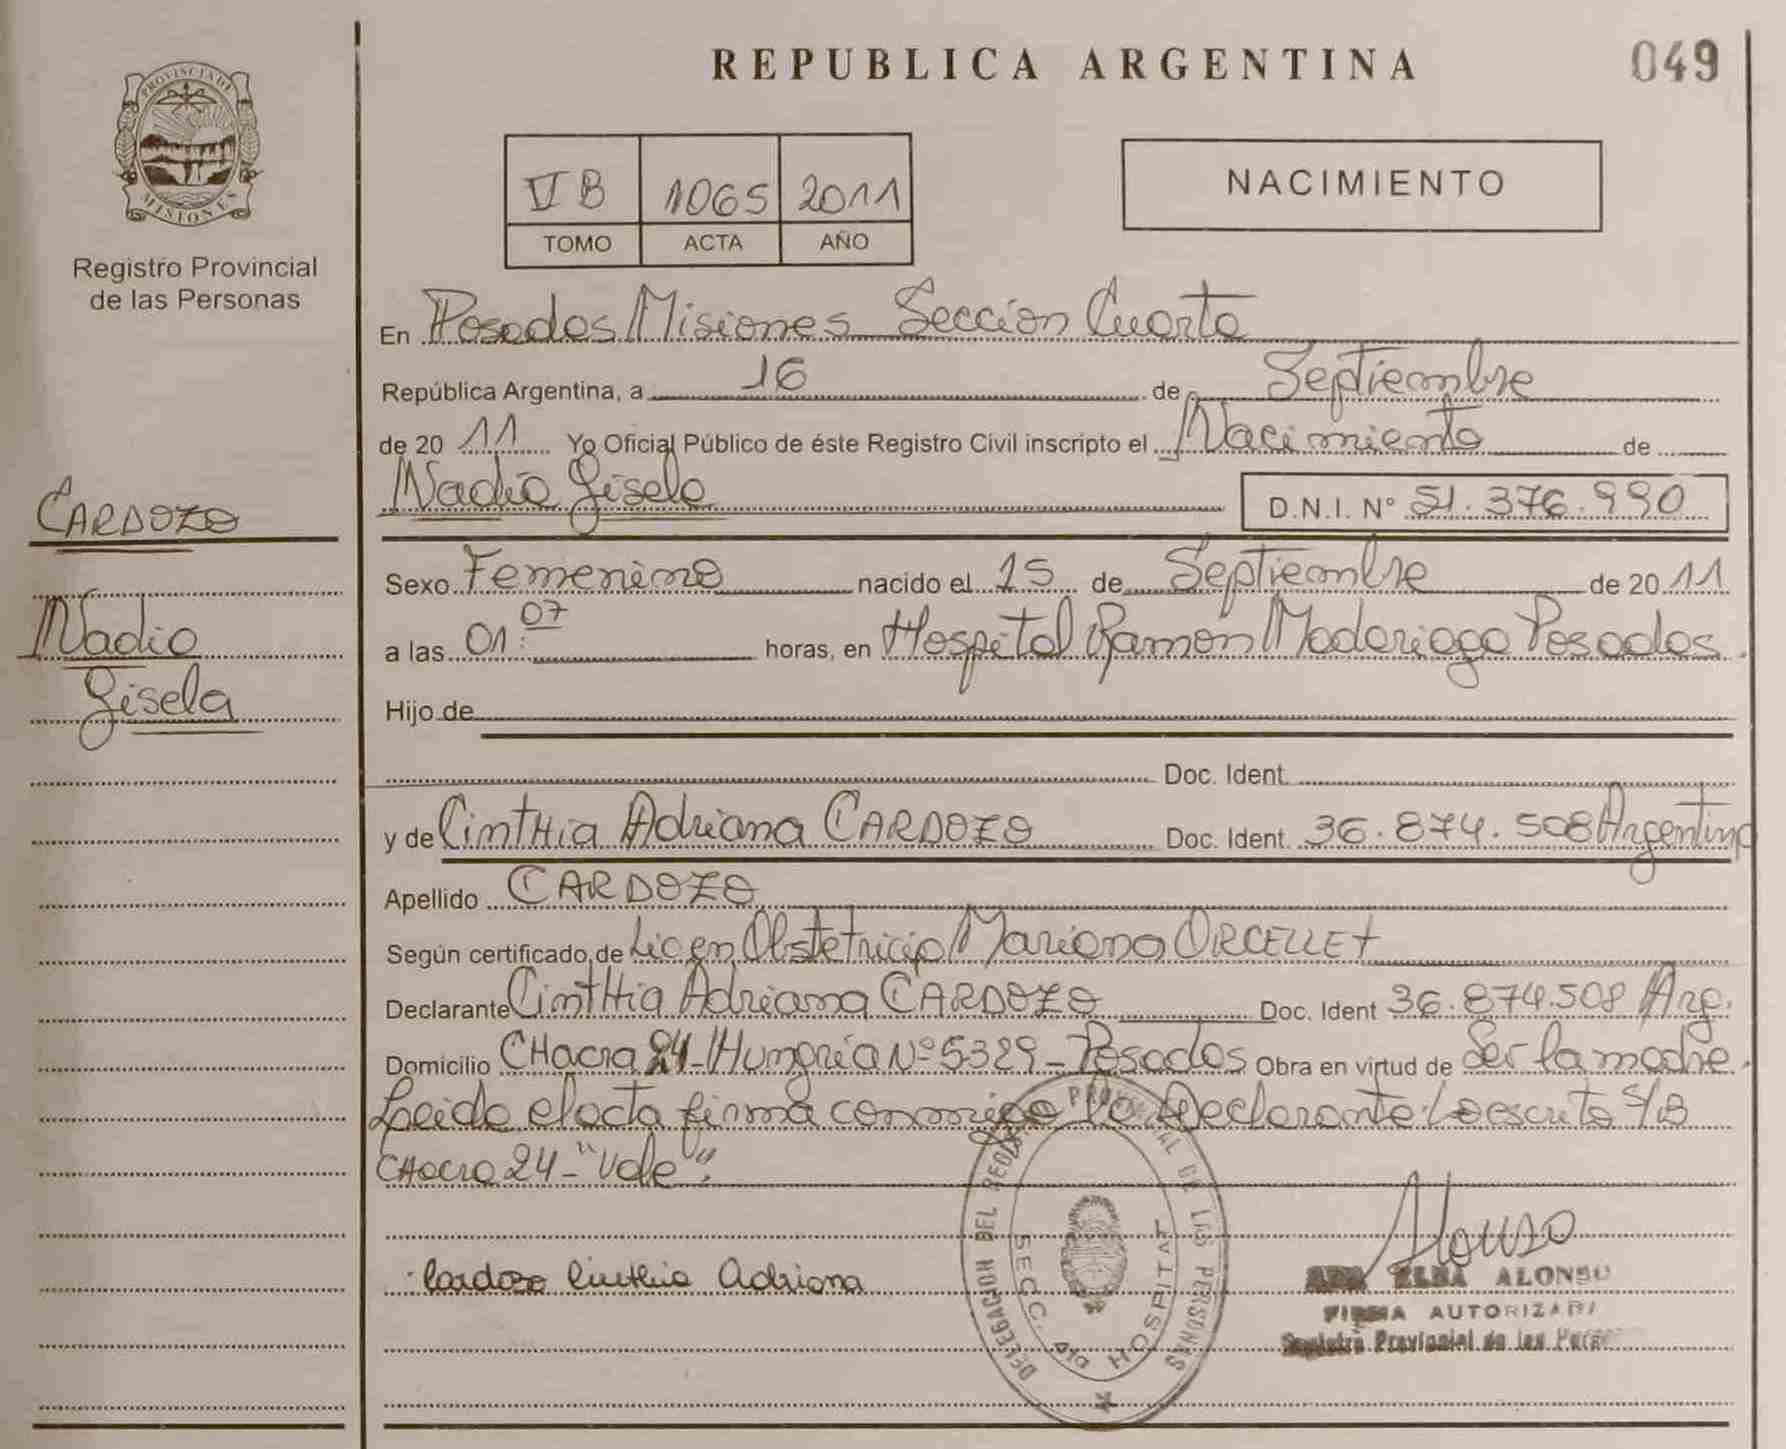 REPUBLICA ARGENTINA
049
PROVINCIA DE
MISIONES
Registro Provincial
de las Personas
VI B 1065 2011
TOMO ACTA AÑO
NACIMIENTO
En Posadas Misiones Sección Cuarta
República Argentina, a 16 de Septiembre
de 20 11 Yo Oficial Público de éste Registro Civil inscripto el Nacimiento de
Nadia Gisela D.N.I. N° 51.376.990
CARDOZO
Nadia
Gisela
Sexo Femenino nacido el 15 de Septiembre de 20 11
a las 01:07 horas, en Hospital Ramon Madariaga Posadas.
Hijo de
Doc. Ident.
y de CintHia Adriana CARDOZO Doc. Ident. 36.874.508 Argentina
Apellido CARDOZO
Según certificado de Lic en Obstetricia Mariana ORCELLET
Declarante CintHia Adriana CARDOZO Doc. Ident 36.874.508 Arg.
Domicilio CHacra 24-Hungría Nº 5329-Posadas Obra en virtud de Ser la madre.
Leida el acta firma conmigo la Declarante. Lo escrito S/B
CHacra 24-"Vale".
Cardozo Cinthia Adriana
DELEGACION DEL REGISTRO PROVINCIAL DE LAS PERSONAS
SECC. 4ta HOSPITAL
Alonso
ELBA ALONSO
FIRMA AUTORIZADA
Registro Provincial de las Personas